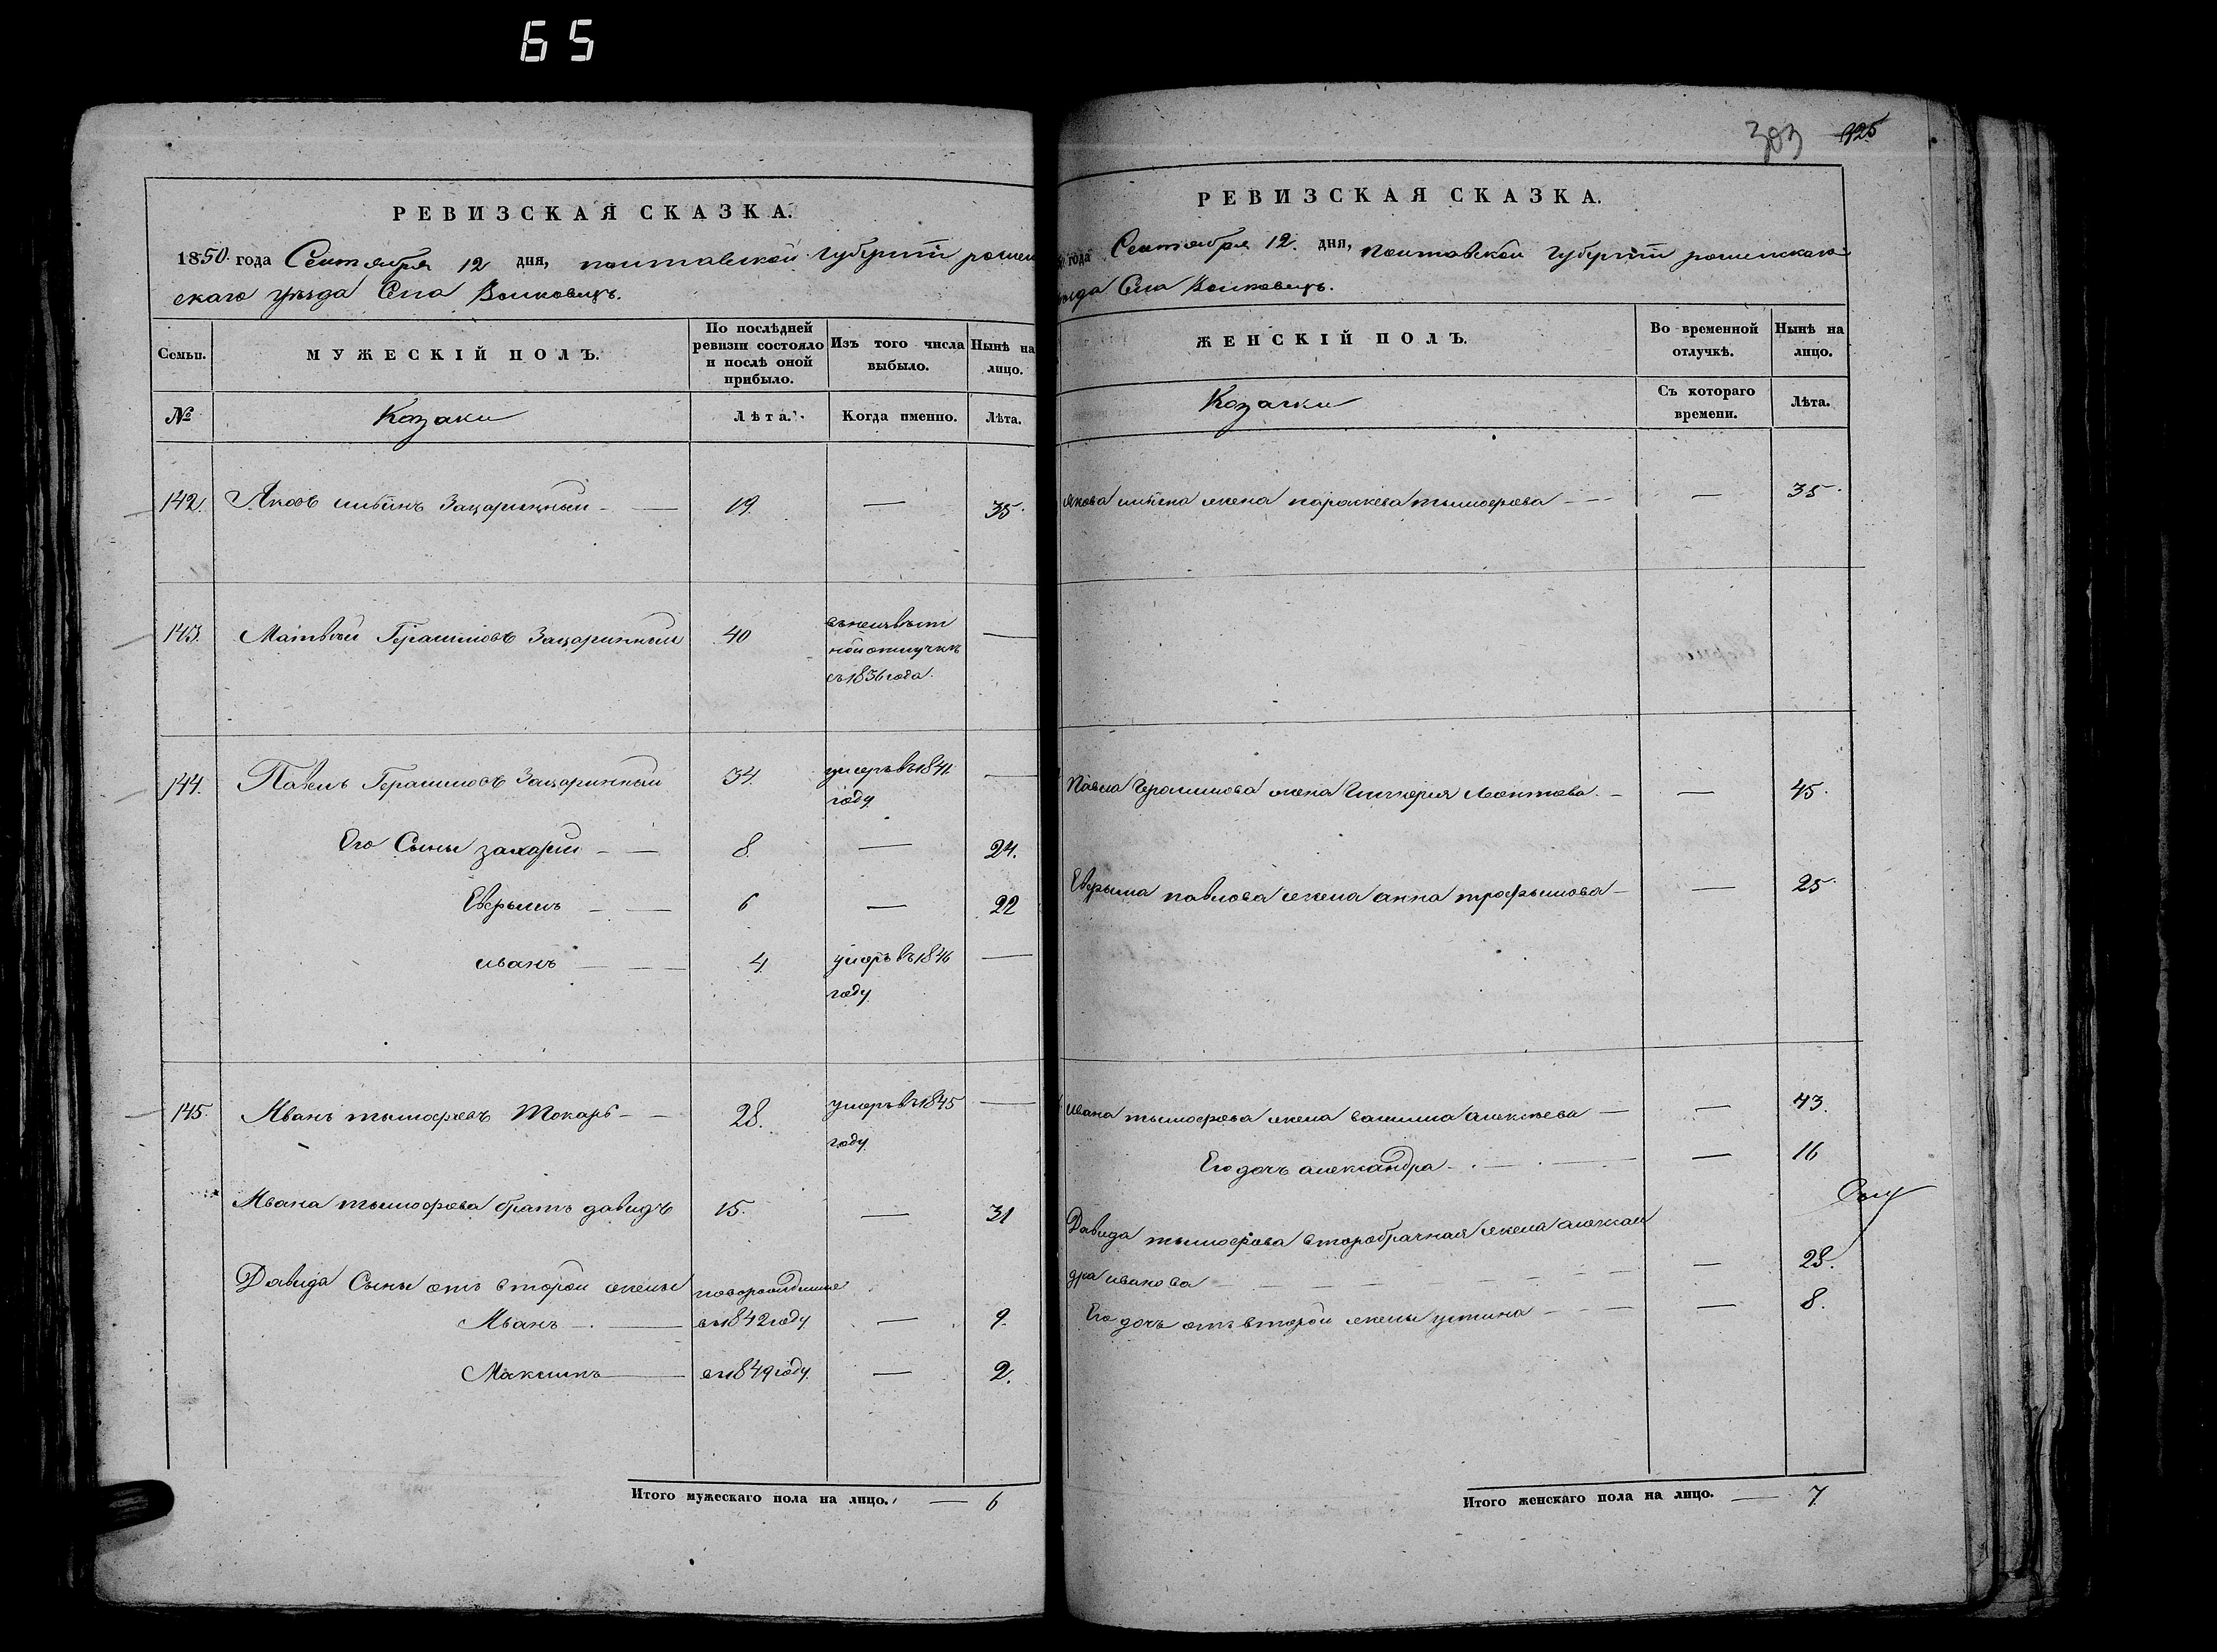 65
РЕВИЗСКАЯ СКАЗКА.
1850 года Сентября 12 дня, полтавской губерніи ромен
скаго уезда Села Волковецъ.
Семьи.
МУЖЕСКІЙ ПОЛЪ.
По послѣдней ревизіи состояло и послѣ оной прибыло.
Изъ того числа выбыло.
Нынѣ на лицо.
№
Козаки
Лѣта.
Когда именно.
Лѣта.
142. Яковъ Зацаринный — 19. — 35.
143. Матвѣй Герасимовъ Зацаринный 40 —
въ неизвѣст
ной отлучкѣ
съ 1836 года.
144. Павелъ Герасимовъ Зацаринный 34. умеръ въ 1841 —
году
Его Сыны захарій — 8. — 24.
Евфымъ — 6 — 22
иванъ — 4 умеръ въ 1846 —
году
145. Иванъ тымофеевъ Токарь — 28. умеръ въ 1845 —
году
Ивана тымофеева братъ давидъ 15. — 31
Давида Сыны отъ второй жены новорожденные
Иванъ — въ 1842 году — 9.
Максимъ — въ 1849 году — 2.
Итого мужескаго пола на лицо. — 6
303 325
РЕВИЗСКАЯ СКАЗКА.
года Сентября 12. дня, полтавской губерніи роменскаго
уезда Села Волковецъ.
ЖЕНСКІЙ ПОЛЪ.
Во временной отлучкѣ.
Нынѣ на лицо.
Козачки
Съ котораго времени.
Лѣта.
Якова жена параскева тымофеева — — 35.
Павла Герасимова жена Гликерія Леонтова — — 45.
Евфыма павлова жена анна трофымова — — 25.
Ивана тымофеева жена алексеева — — 43.
Его дочь александра — — 16
Давида тымофеева второбрачная жена алексан
дра иванова — — 28.
Его дочь отъ второй жены устина — — 8.
Итого женскаго пола на лицо. — 7